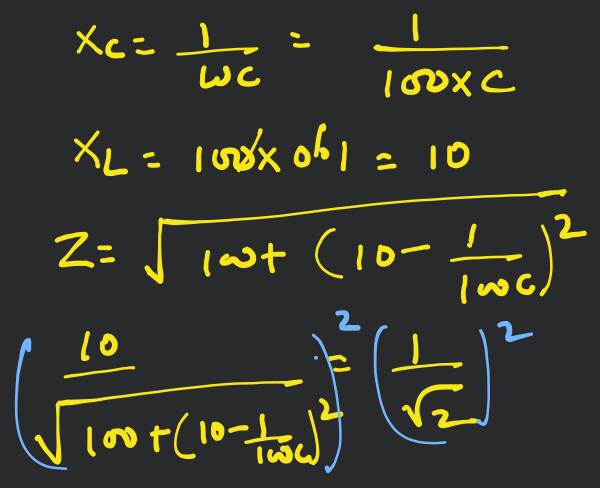 X_C = 1/ωC = 1/(100×C)
X_L = 100×0.1 = 10
Z = √(100+(10-1/(100C))²)
(10/√(100+(10-1/(100C))²))² = (1/√2)²